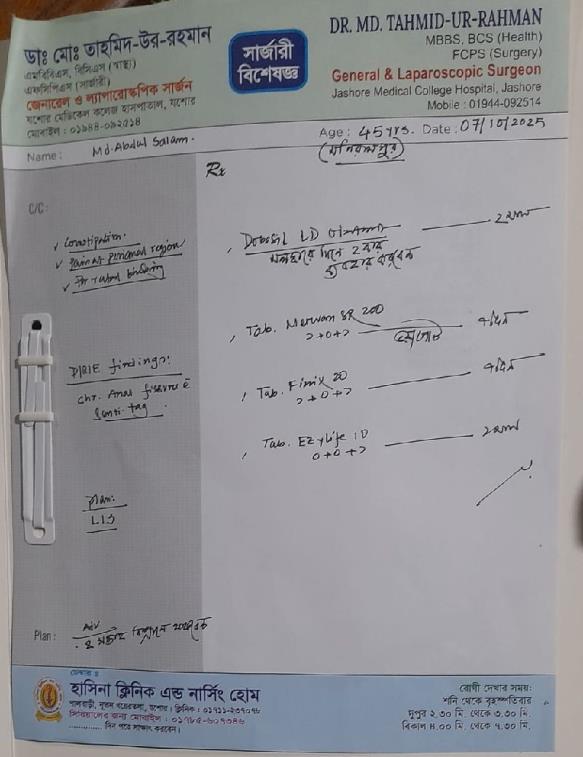 ডাঃ মোঃ তাহমিদ-উর-রহমান
এমবিবিএস, বিসিএস (স্বাস্থ্য)
এফসিপিএস (সার্জারী)
জেনারেল ও ল্যাপারোস্কপিক সার্জন
যশোর মেডিকেল কলেজ হাসপাতাল, যশোর
মোবাইল : ০১৯৪৪-০৯২৫১৪
সার্জারী
বিশেষজ্ঞ
DR. MD. TAHMID-UR-RAHMAN
MBBS, BCS (Health)
FCPS (Surgery)
General & Laparoscopic Surgeon
Jashore Medical College Hospital, Jashore
Mobile : 01944-092514
Name : Md. Abdul Salam. Age : 45 yrs. Date : 07/10/2025
(মনিরামপুর)
Rx
C/C:
Constipation.
Pain at perianal region
Per rectal bleeding
D/R/E findings:
Chr. Anal fissure c̄
Senti. tag.
Plan:
LIS
LD
২ মাস
মলদ্বারে দিনে ২ বার
ব্যবহার করবেন
Tab. SR 200
১+০+১
Tab. Finix 20
১+০+১
Tab. Ezylife 10
০+০+১
২ মাস
Plan :
Adv
হাসিনা ক্লিনিক এন্ড নার্সিং হোম
সিরিয়ালের জন্য মোবাইল : ০১৭৮৫-৬০৭৩৪৬
দিন পরে সাক্ষাৎ করবেন।
রোগী দেখার সময়:
শনি থেকে বৃহস্পতিবার
দুপুর ২.৩০ মি. থেকে ৩.৩০ মি.
বিকাল ৪.০০ মি. থেকে ৭.৩০ মি.